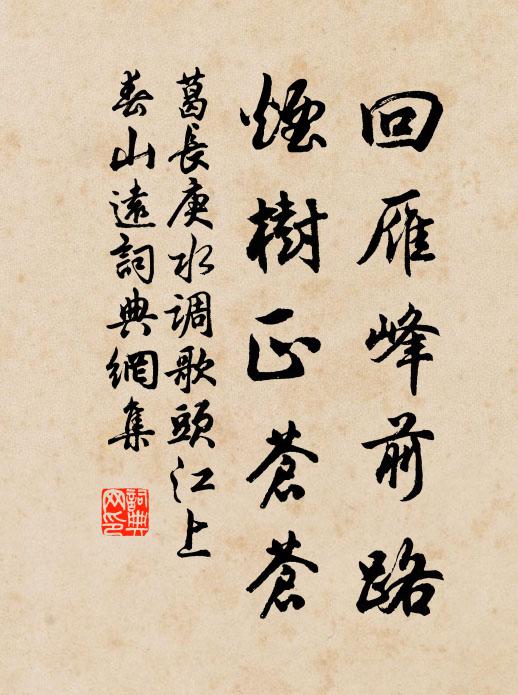 回雁峰前路
煙樹正蒼蒼
葛長庚水调歌頭江上
春山遠詞典網集
詞典网印